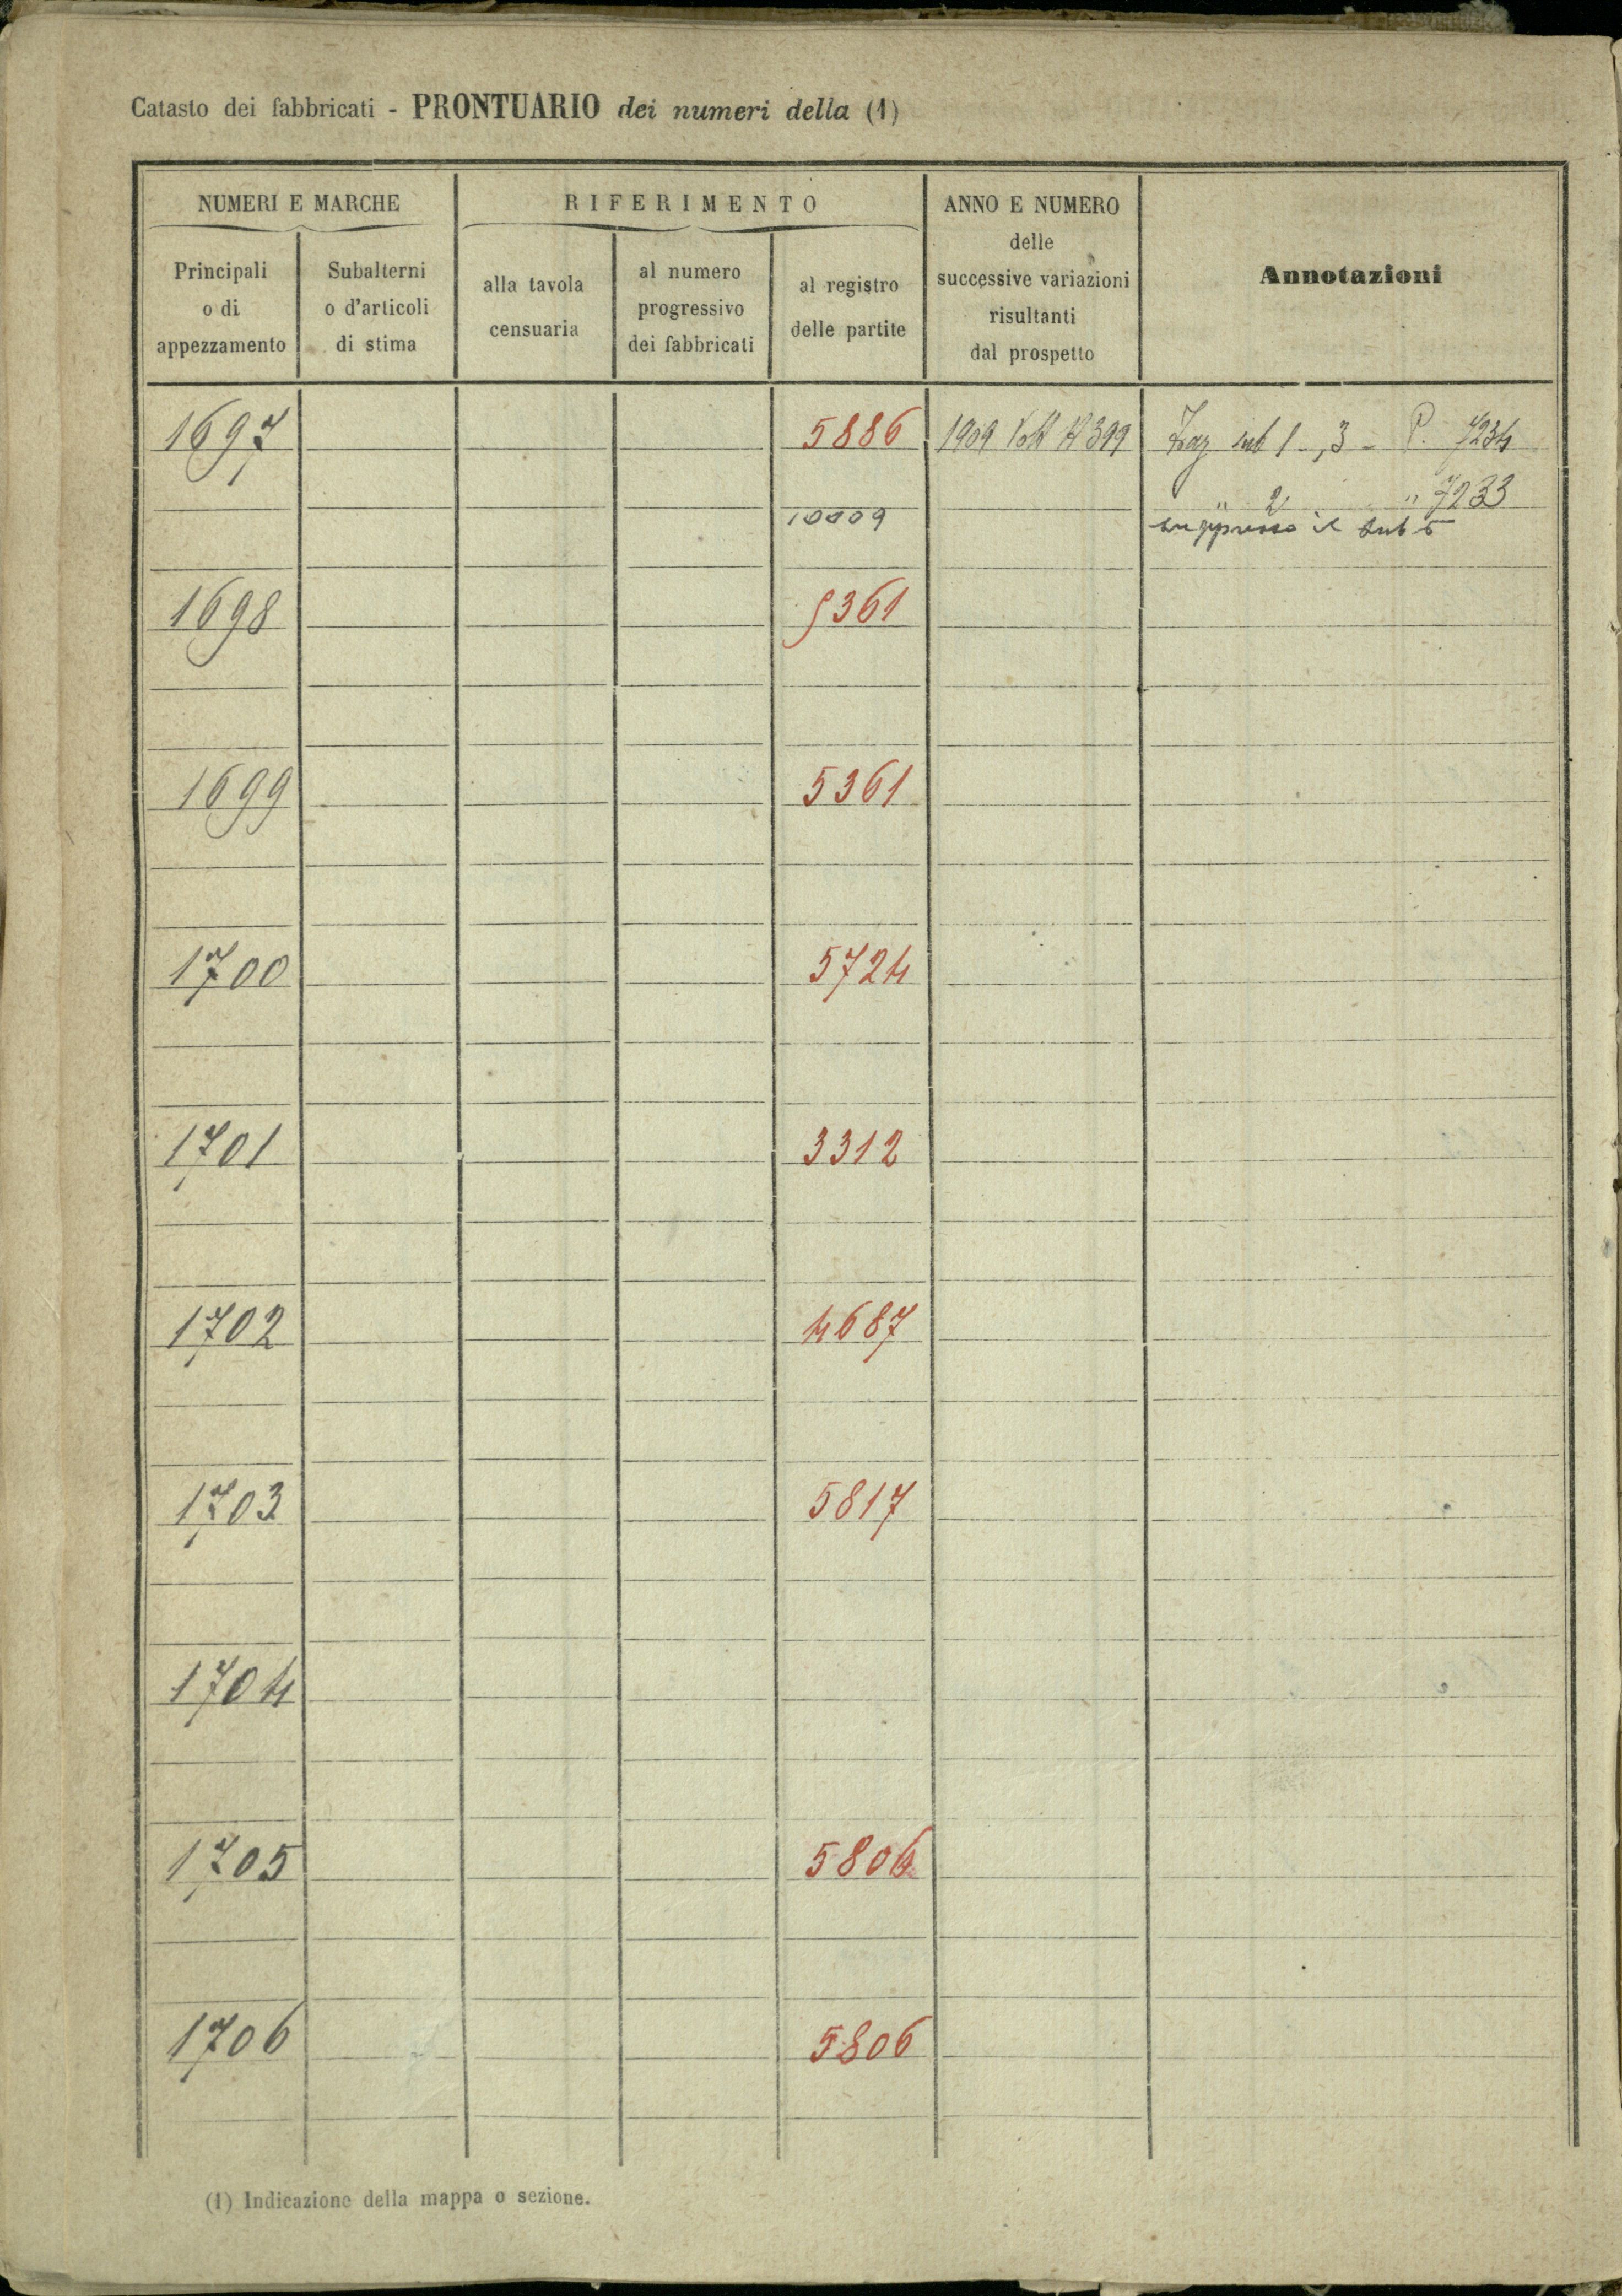 Catasto dei fabbricati - PRONTUARIO dei numeri della (1)
NUMERI E MARCHE
Principali o di appezzamento
Subalterni o d'articoli di stima
RIFERIMENTO
alla tavola censuaria
al numero progressivo dei fabbricati
al registro delle partite
ANNO E NUMERO delle successive variazioni risultanti dal prospetto
Annotazioni
1697 5886 1909 399 sub 1, 3 - P. 7234
" 2 " 7233
10009 soppresso il sub 5
1698 5361
1699 5361
1700 5724
1701 3312
1702 4687
1703 5817
1704
1705 5806
1706 5806
(1) Indicazione della mappa o sezione.